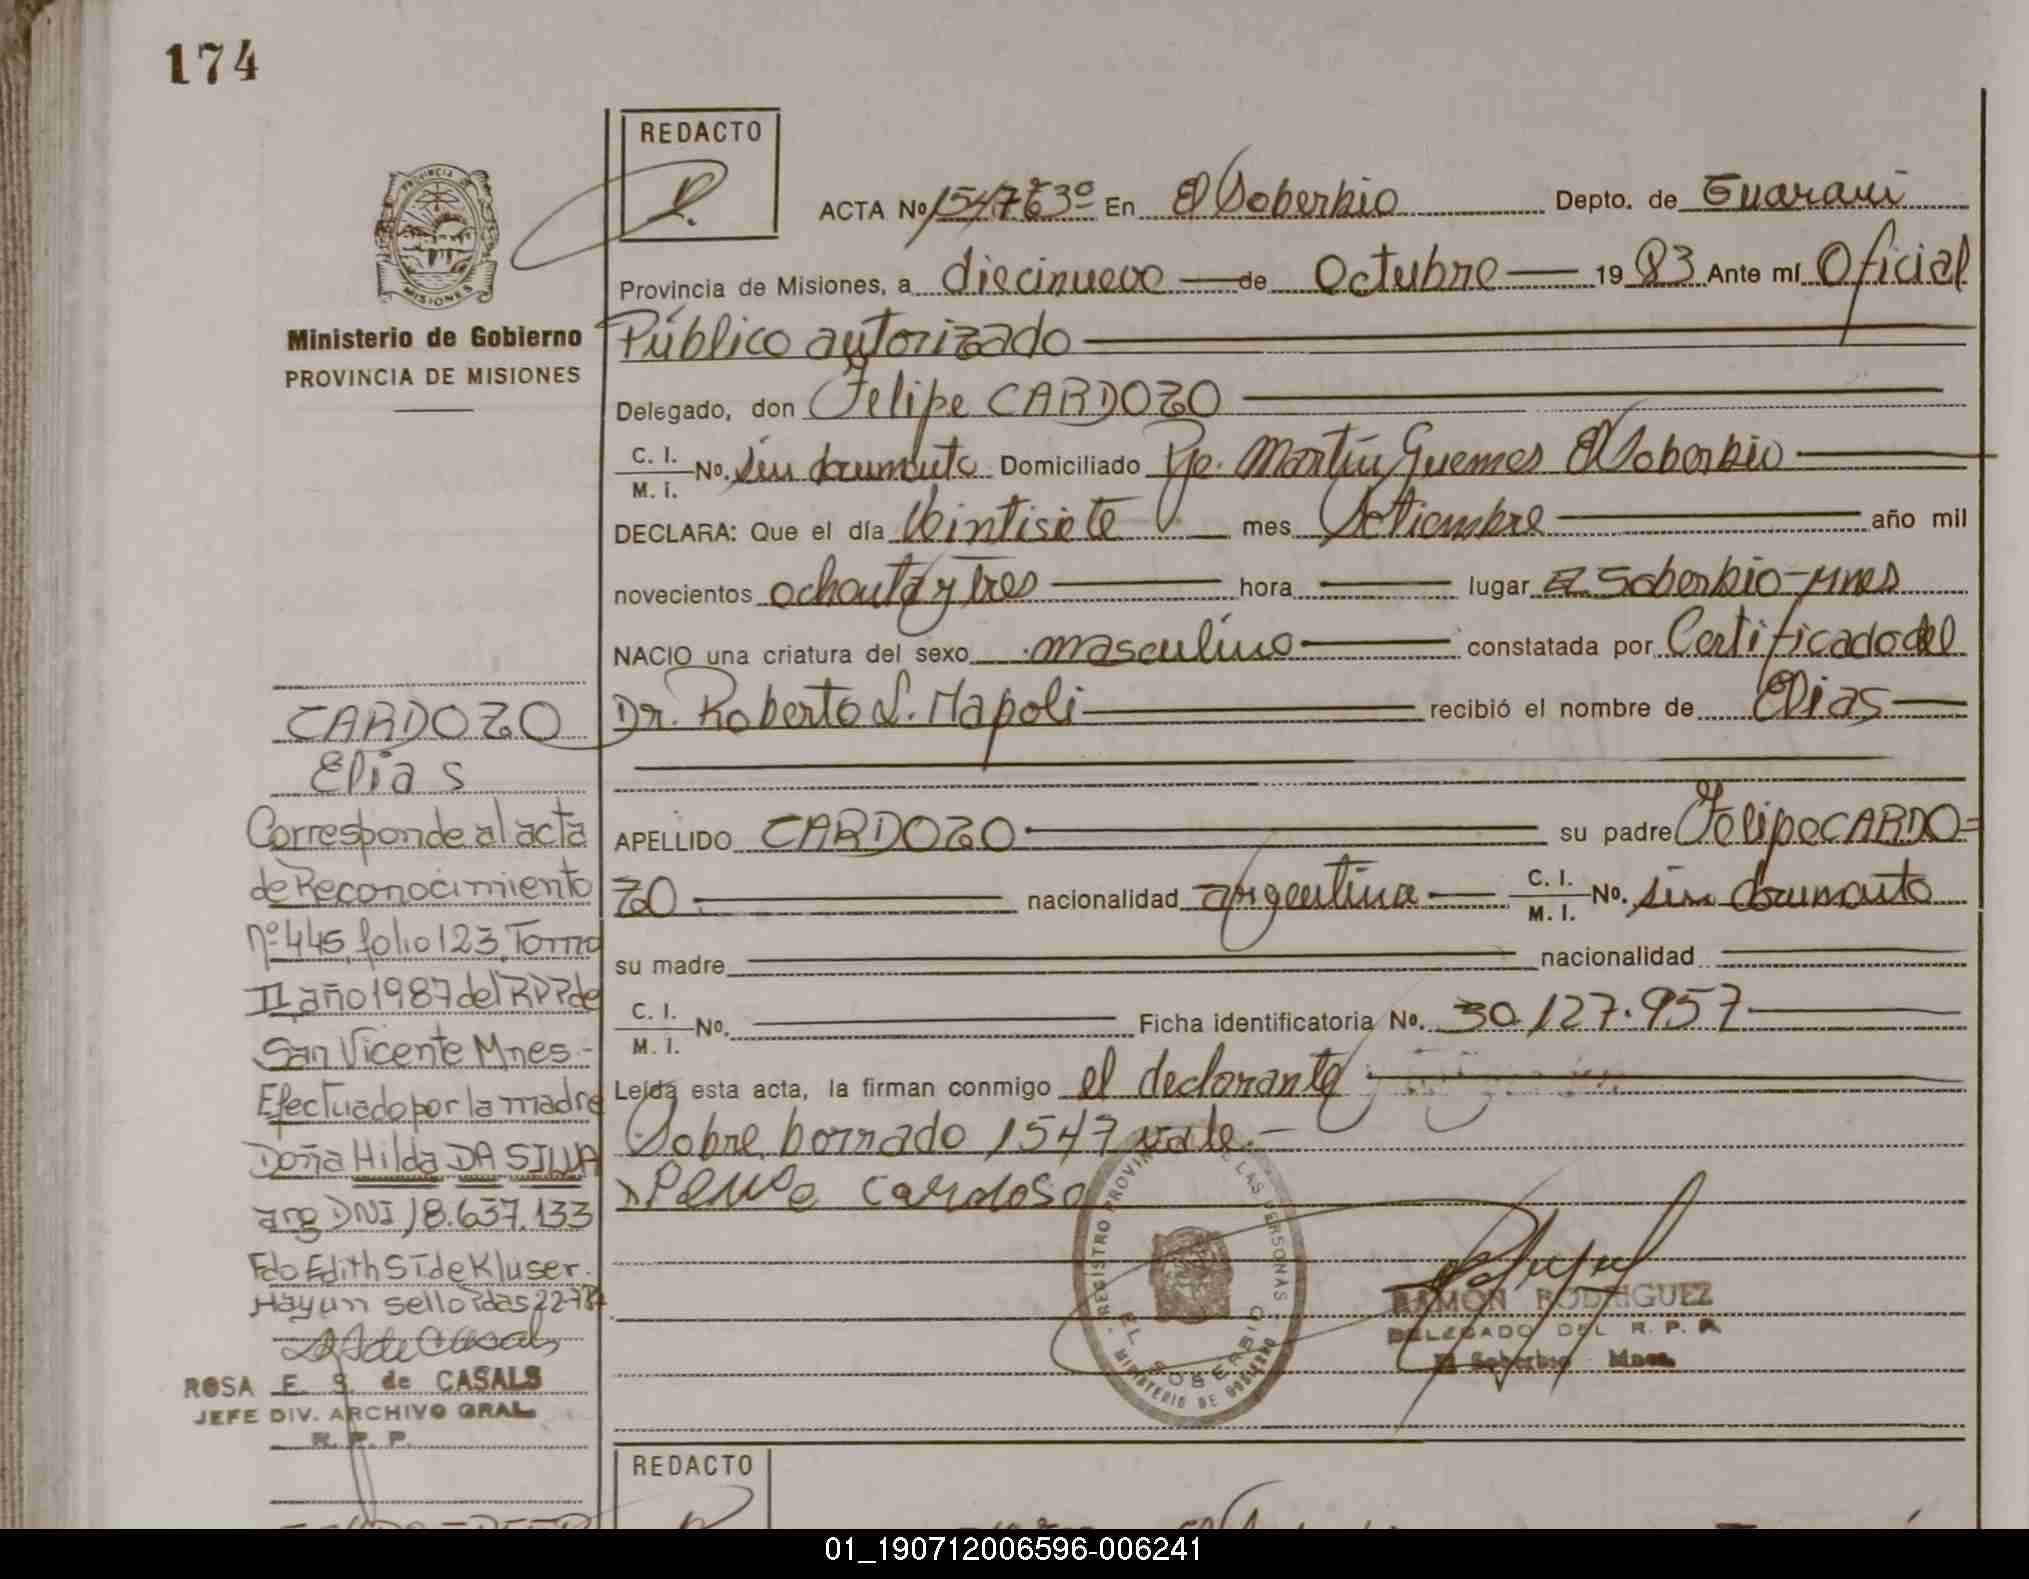 174
REDACTO
ACTA Nº 1547 Tº 3º En El Soberbio Depto. de Guarani
Provincia de Misiones, a diecinueve de Octubre 1983 Ante mí Oficial
Público autorizado
Delegado, don Felipe CARDOZO
C. I.
M. I.
No. sin documento Domiciliado Pje. Martín Guemes El Soberbio
DECLARA: Que el día Veintisiete mes Setiembre año mil
novecientos ochenta y tres hora lugar El Soberbio-Mnes
NACIO una criatura del sexo masculino constatada por Certificado del
Dr. Roberto L. Napoli recibió el nombre de Elias
APELLIDO CARDOZO su padre Felipe CARDO=
ZO nacionalidad argentina C. I.
M. I.
No. sin documento
su madre nacionalidad
C. I.
M. I.
No. Ficha identificatoria No. 30.127.957
Leída esta acta, la firman conmigo el declarante
Sobre borrado 1547 vale.-
Cardoso
REGISTRO PROVINCIAL DE LAS PERSONAS
EL SOBERBIO
MINISTERIO DE GOBIERNO
RAMON RODRIGUEZ
DELEGADO DEL R. P. P.
El Soberbio Mnes.
PROVINCIA DE
MISIONES
Ministerio de Gobierno
PROVINCIA DE MISIONES
CARDOZO
Elias
Corresponde al acta
de Reconocimiento
nº 445, folio 123, Tomo
II año 1987 del RPP de
San Vicente Mnes.-
Efectuado por la madre
Doña Hilda DA SILVA
arg DNI 18.637.133
Fdo Edith S. T de Kluser.
Hay un sello Pdas 22-
ROSA E. S. de CASALS
JEFE DIV. ARCHIVO GRAL.
R. P. P.
REDACTO
01_190712006596-006241